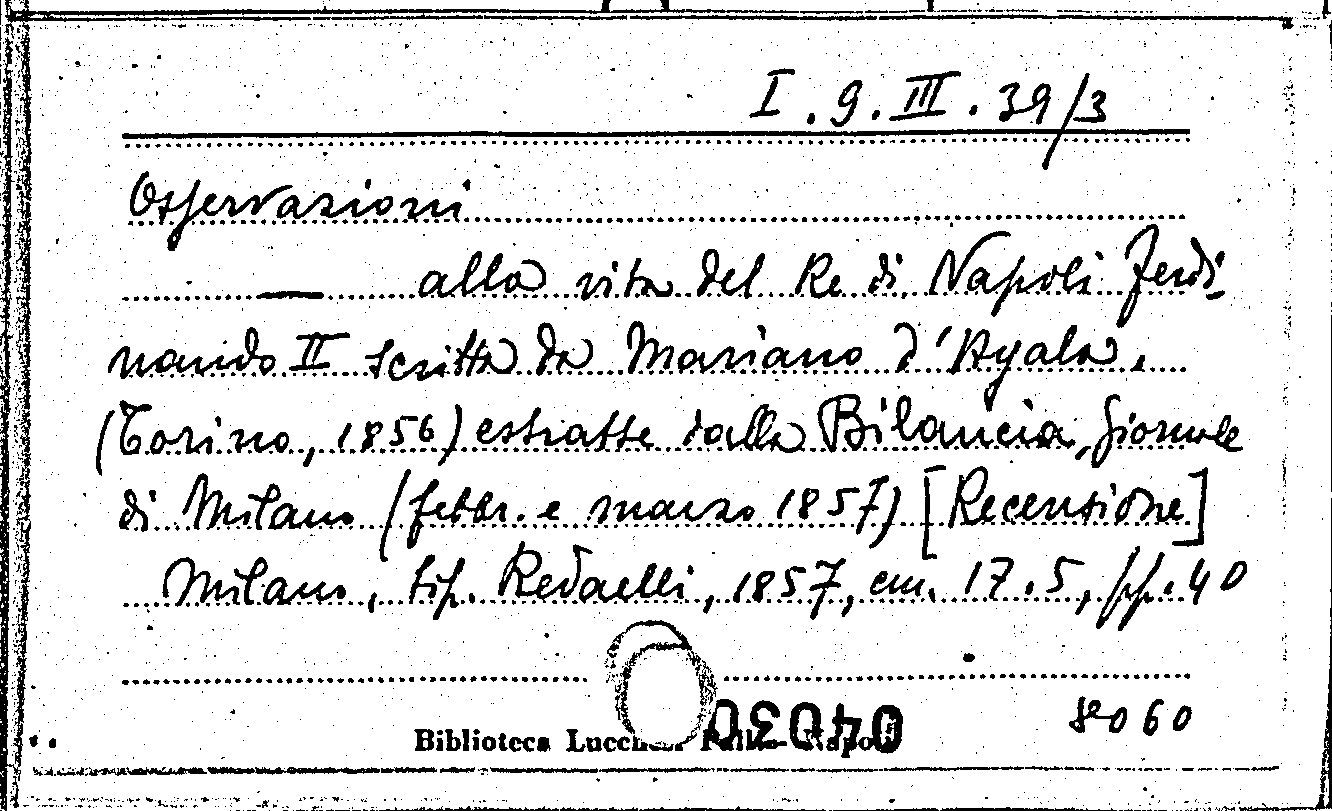 I.9.III.39/3
Osservazioni
— alla vita del Re di Napoli Ferdi-
nando II scritta da Mariano d'Ayala.
(Torino, 1856) estratte dalla Bilancia, giornale
di Milano (febbr. e marzo 1857) [Recensione]
Milano, tip. Redaelli, 1857, cm. 17.5, pp. 40
04030
8060
Biblioteca Lucchesi Palli - Napoli